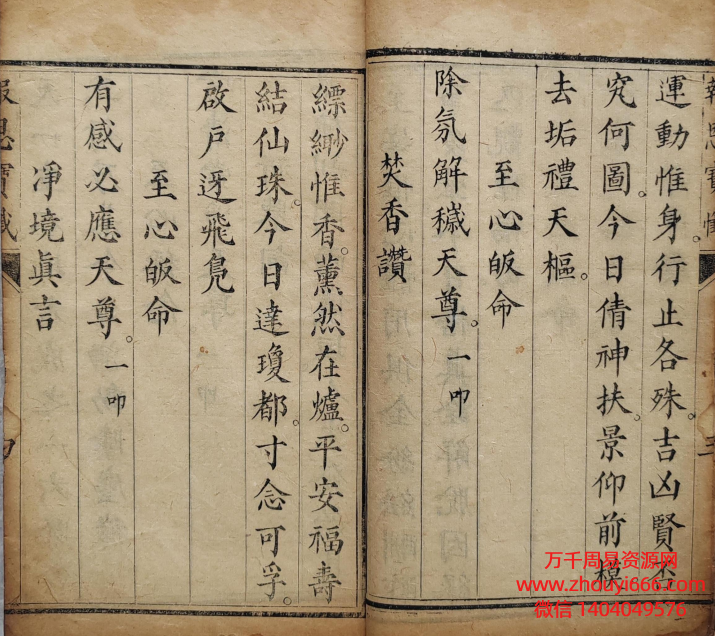 運動惟身。行止各殊。吉凶賢否
究何圖。今日倩神扶。景仰前模
去垢禮天樞。
至心皈命
除氛解穢天尊。一叩
焚香讚
縹緲惟香。薰然在爐。平安福壽
結仙珠。今日達瓊都。寸念可孚。
啟戶迓飛鳧
至心皈命
有感必應天尊。一叩
凈境眞言
報恩寶懺
万千周易资源网
www.zhouyi666.com
微信 1404049576